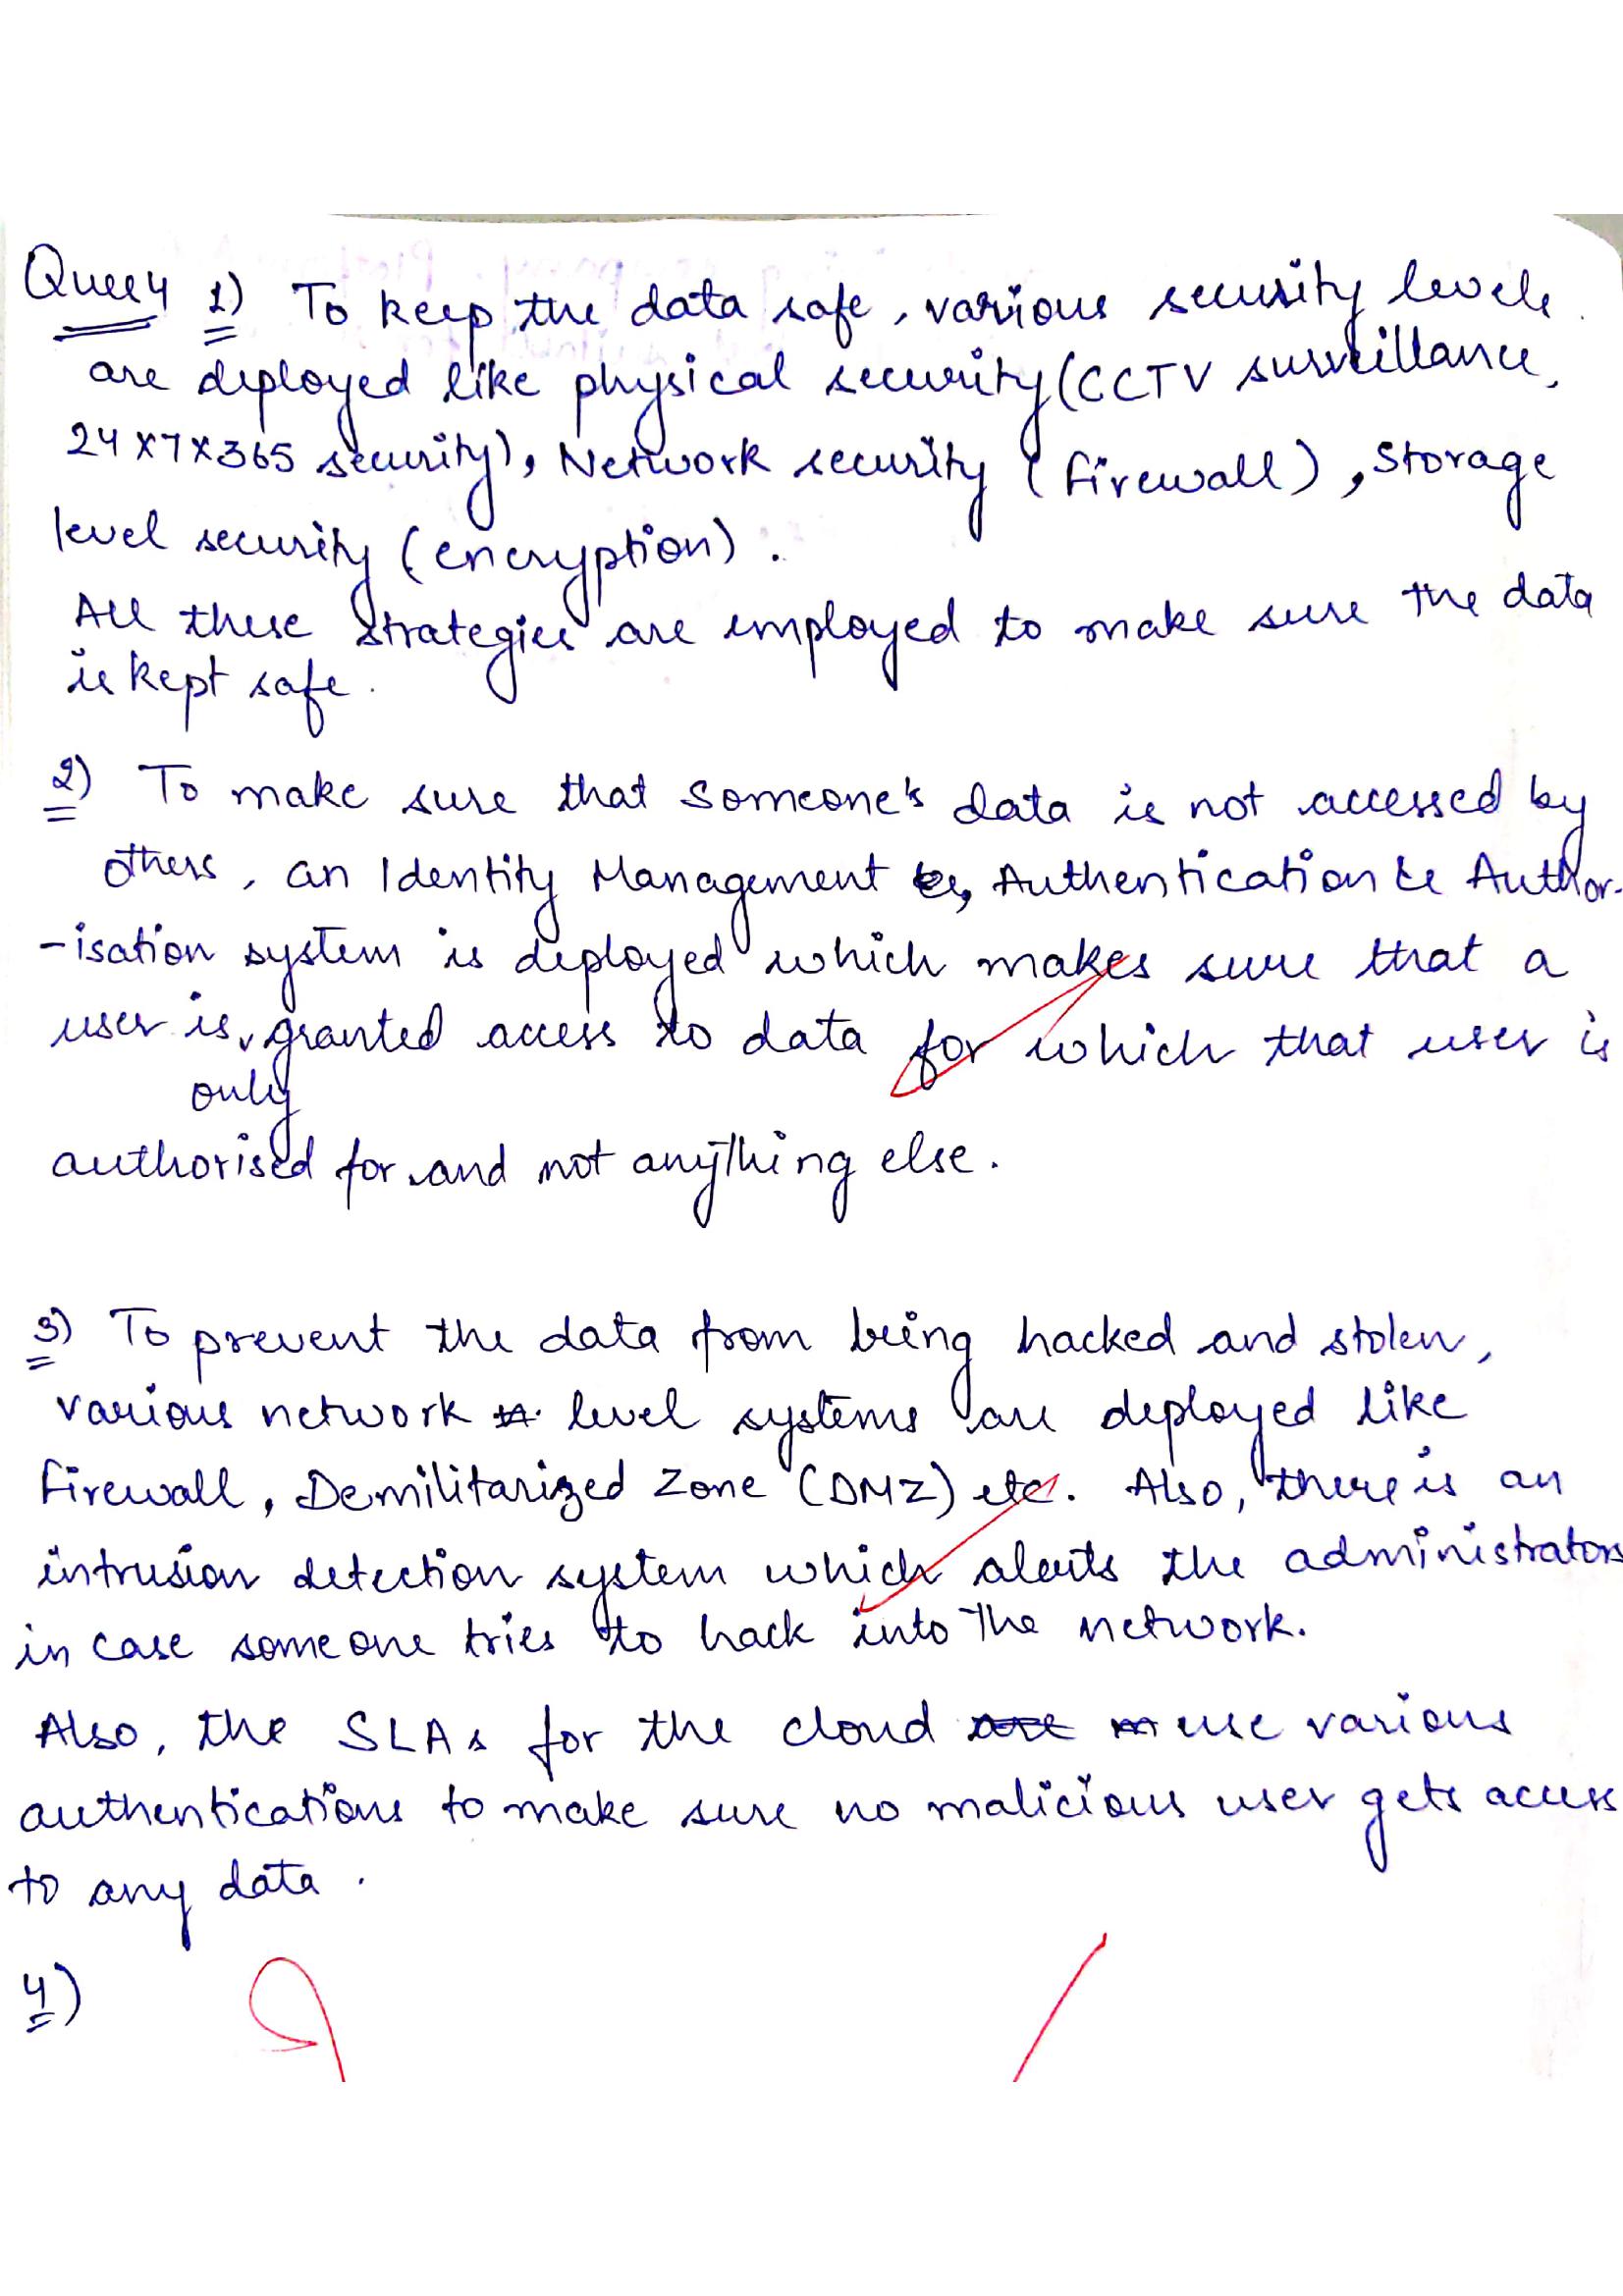 Query 1) To keep the data safe, various security levels
are deployed like physical security (CCTV surveillance,
24x7x365 security), Network security (firewall), Storage
level security (encryption).
All these strategies are employed to make sure the data
is kept safe.
2) To make sure that someone's data is not accessed by
others, an Identity Management, Authentication & Author-
-isation system is deployed which makes sure that a
user is only granted access to data for which that user is
authorised for and not anything else.
3) To prevent the data from being hacked and stolen,
various network level systems are deployed like
firewall, Demilitarized Zone (DMZ) etc. Also, there is an
intrusion detection system which alerts the administrators
in case someone tries to hack into the network.
Also, the SLAs for the cloud use various
authentications to make sure no malicious user gets access
to any data.
4)